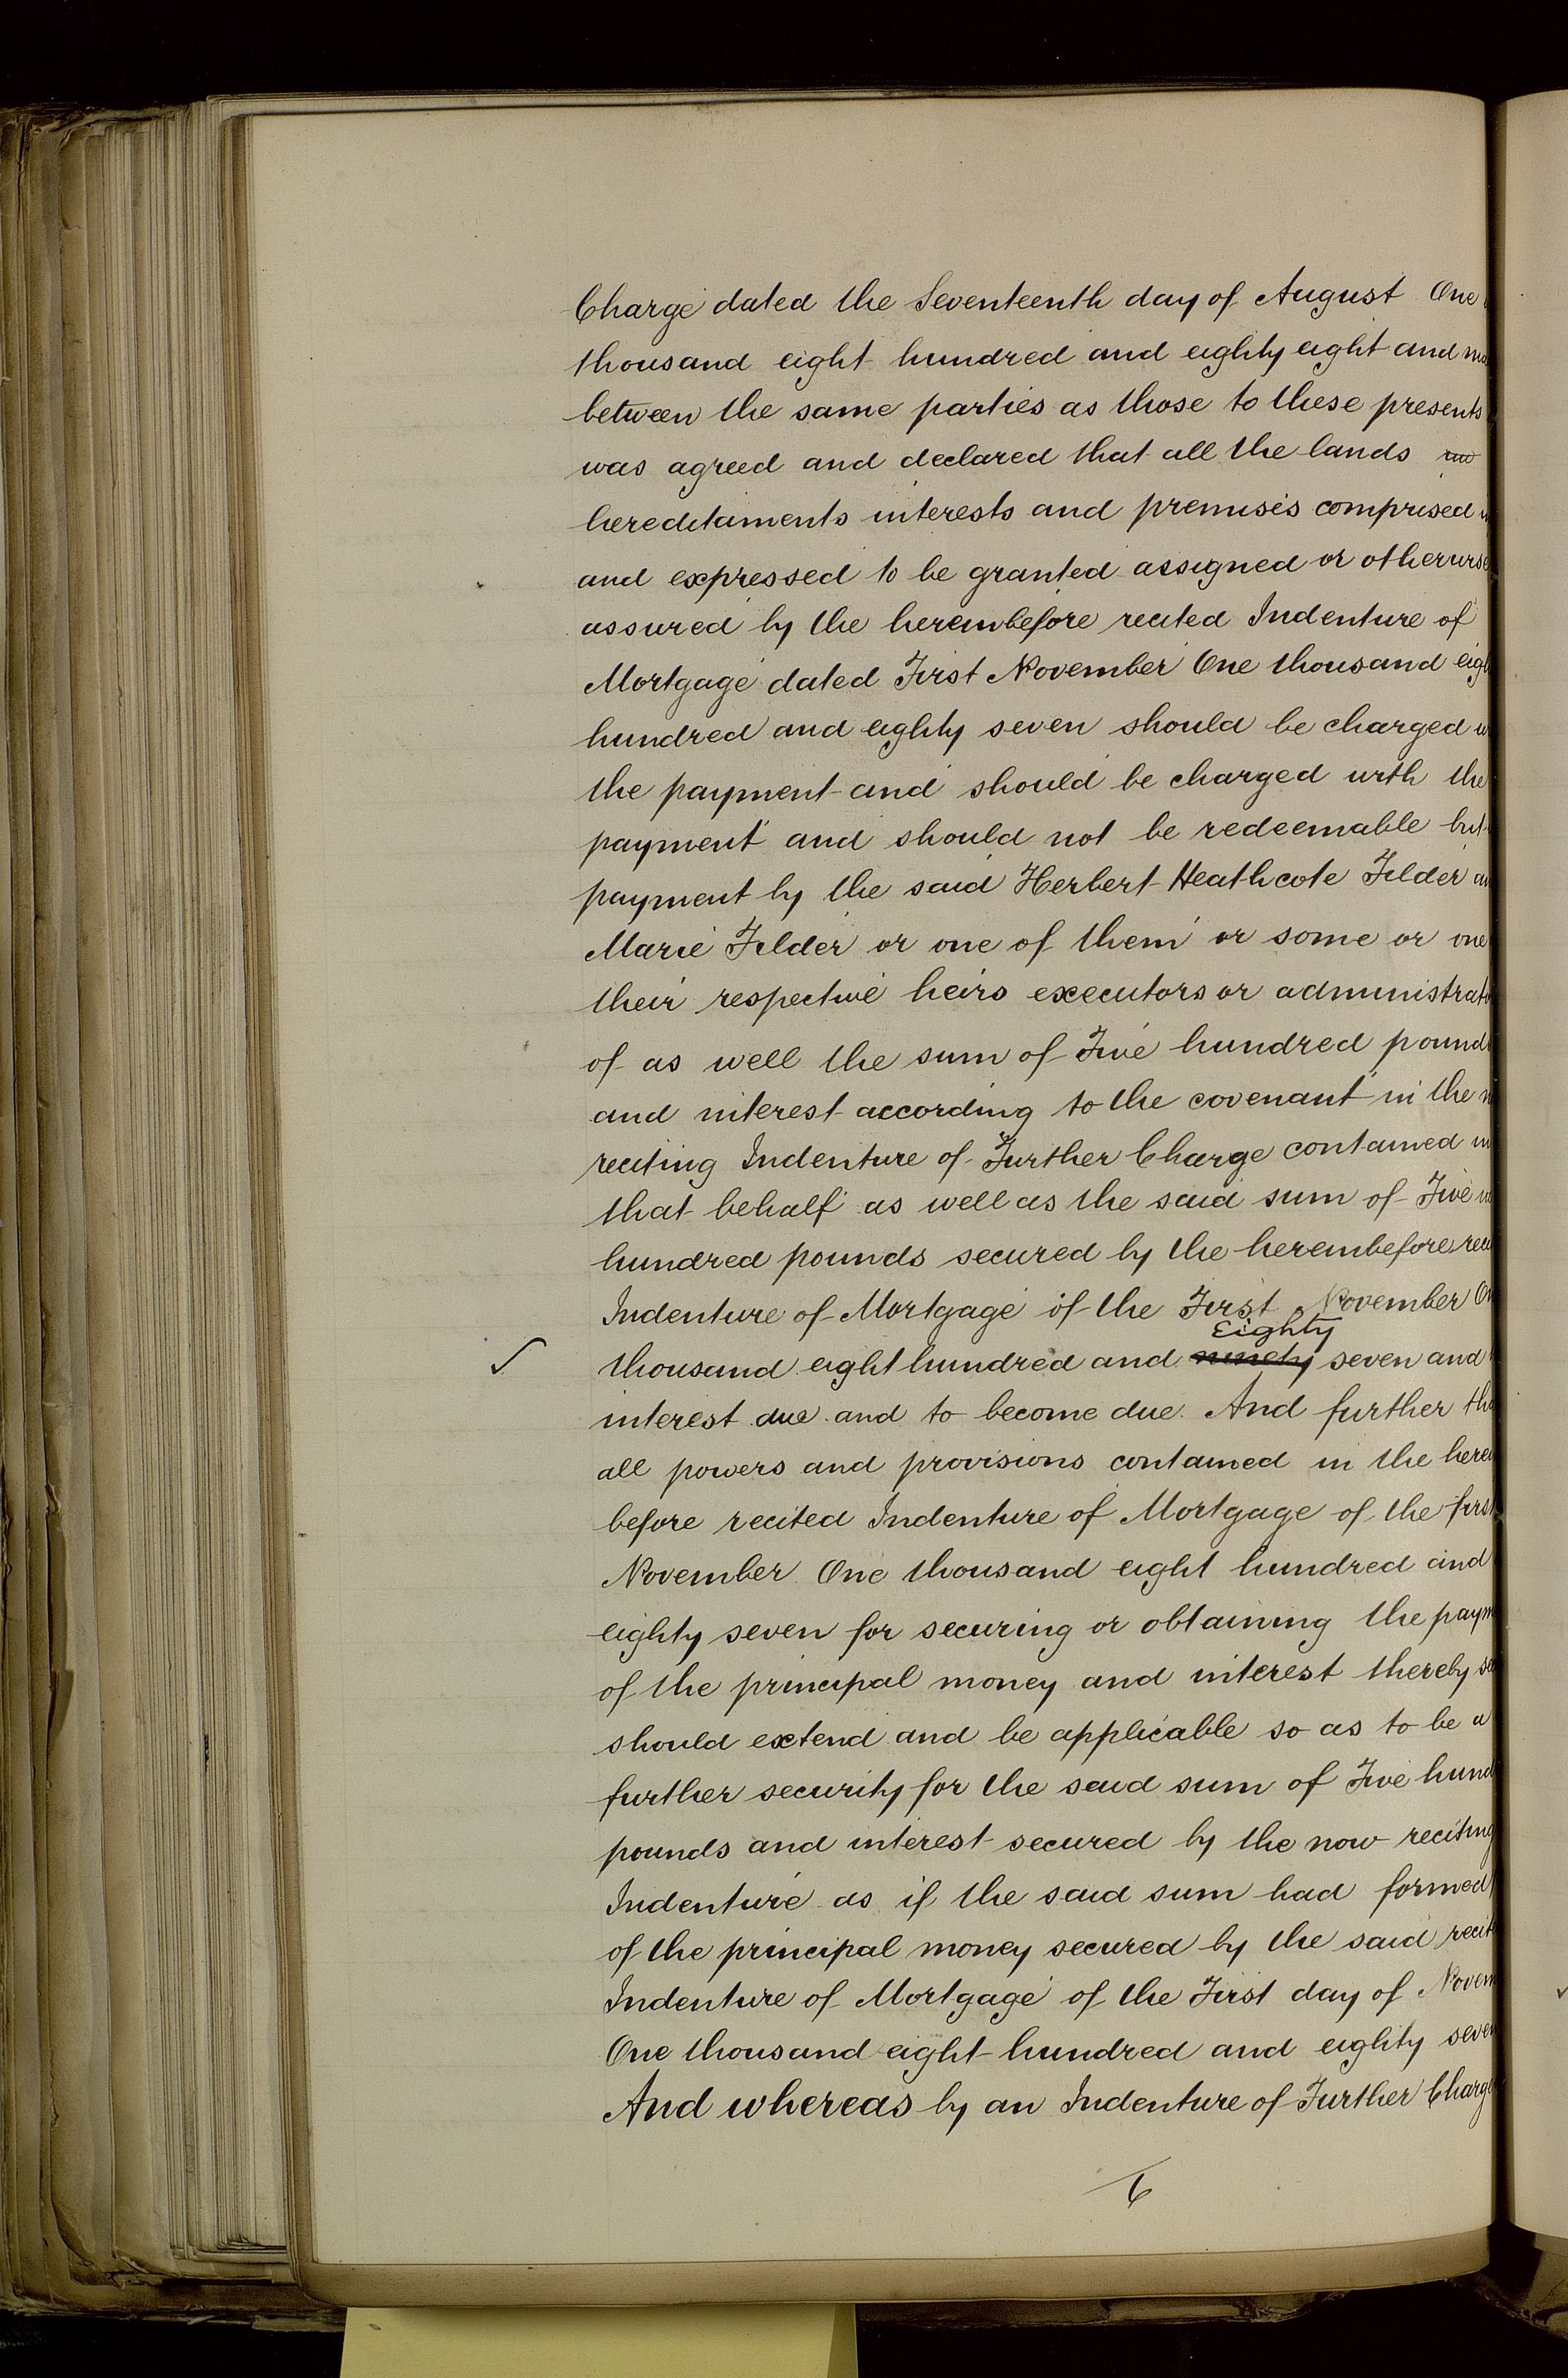 Charge dated the Seventeenth day of August One
thousand eight hundred and eighty eight and
between the same parties as those to these presents
was agreed and declared that all the lands
hereditaments interests and premises comprised
and expressed to be granted assigned or otherwise
assured by the hereinbefore recited Indenture of
Mortgage dated First November One thousand eig
hundred and eighty seven should be charged
the payment and should be charged with the
payment and should not be redeemable but
payment by the said Herbert Heathcote Filder
Marie Filder or one of them or some or one
their respective heirs executors or administrato
of as well the sum of Five hundred pounds
and interest according to the covenant in the
reciting Indenture of Further Charge contained in
that behalf as well as the said sum of Five
hundred pounds secured by the hereinbefore rec
Indenture of Mortgage of the First November On
Eighty
thousand eight hundred and ninety seven and
interest due and to become due. And further tha
all powers and provisions contained in the herei
before recited Indenture of Mortgage of the first
November One thousand eight hundred and
eighty seven for securing or obtaining the paym
of the principal money and interest thereby se
should extend and be applicable so as to be a
further security for the said sum of Five hund
pounds and interest secured by the now reciting
Indenture as if the said sum had formed
of the principal money secured by the said recit
Indenture of Mortgage of the First day of Novem
One thousand eight hundred and eighty seven
And whereas by an Indenture of Further Charge
6